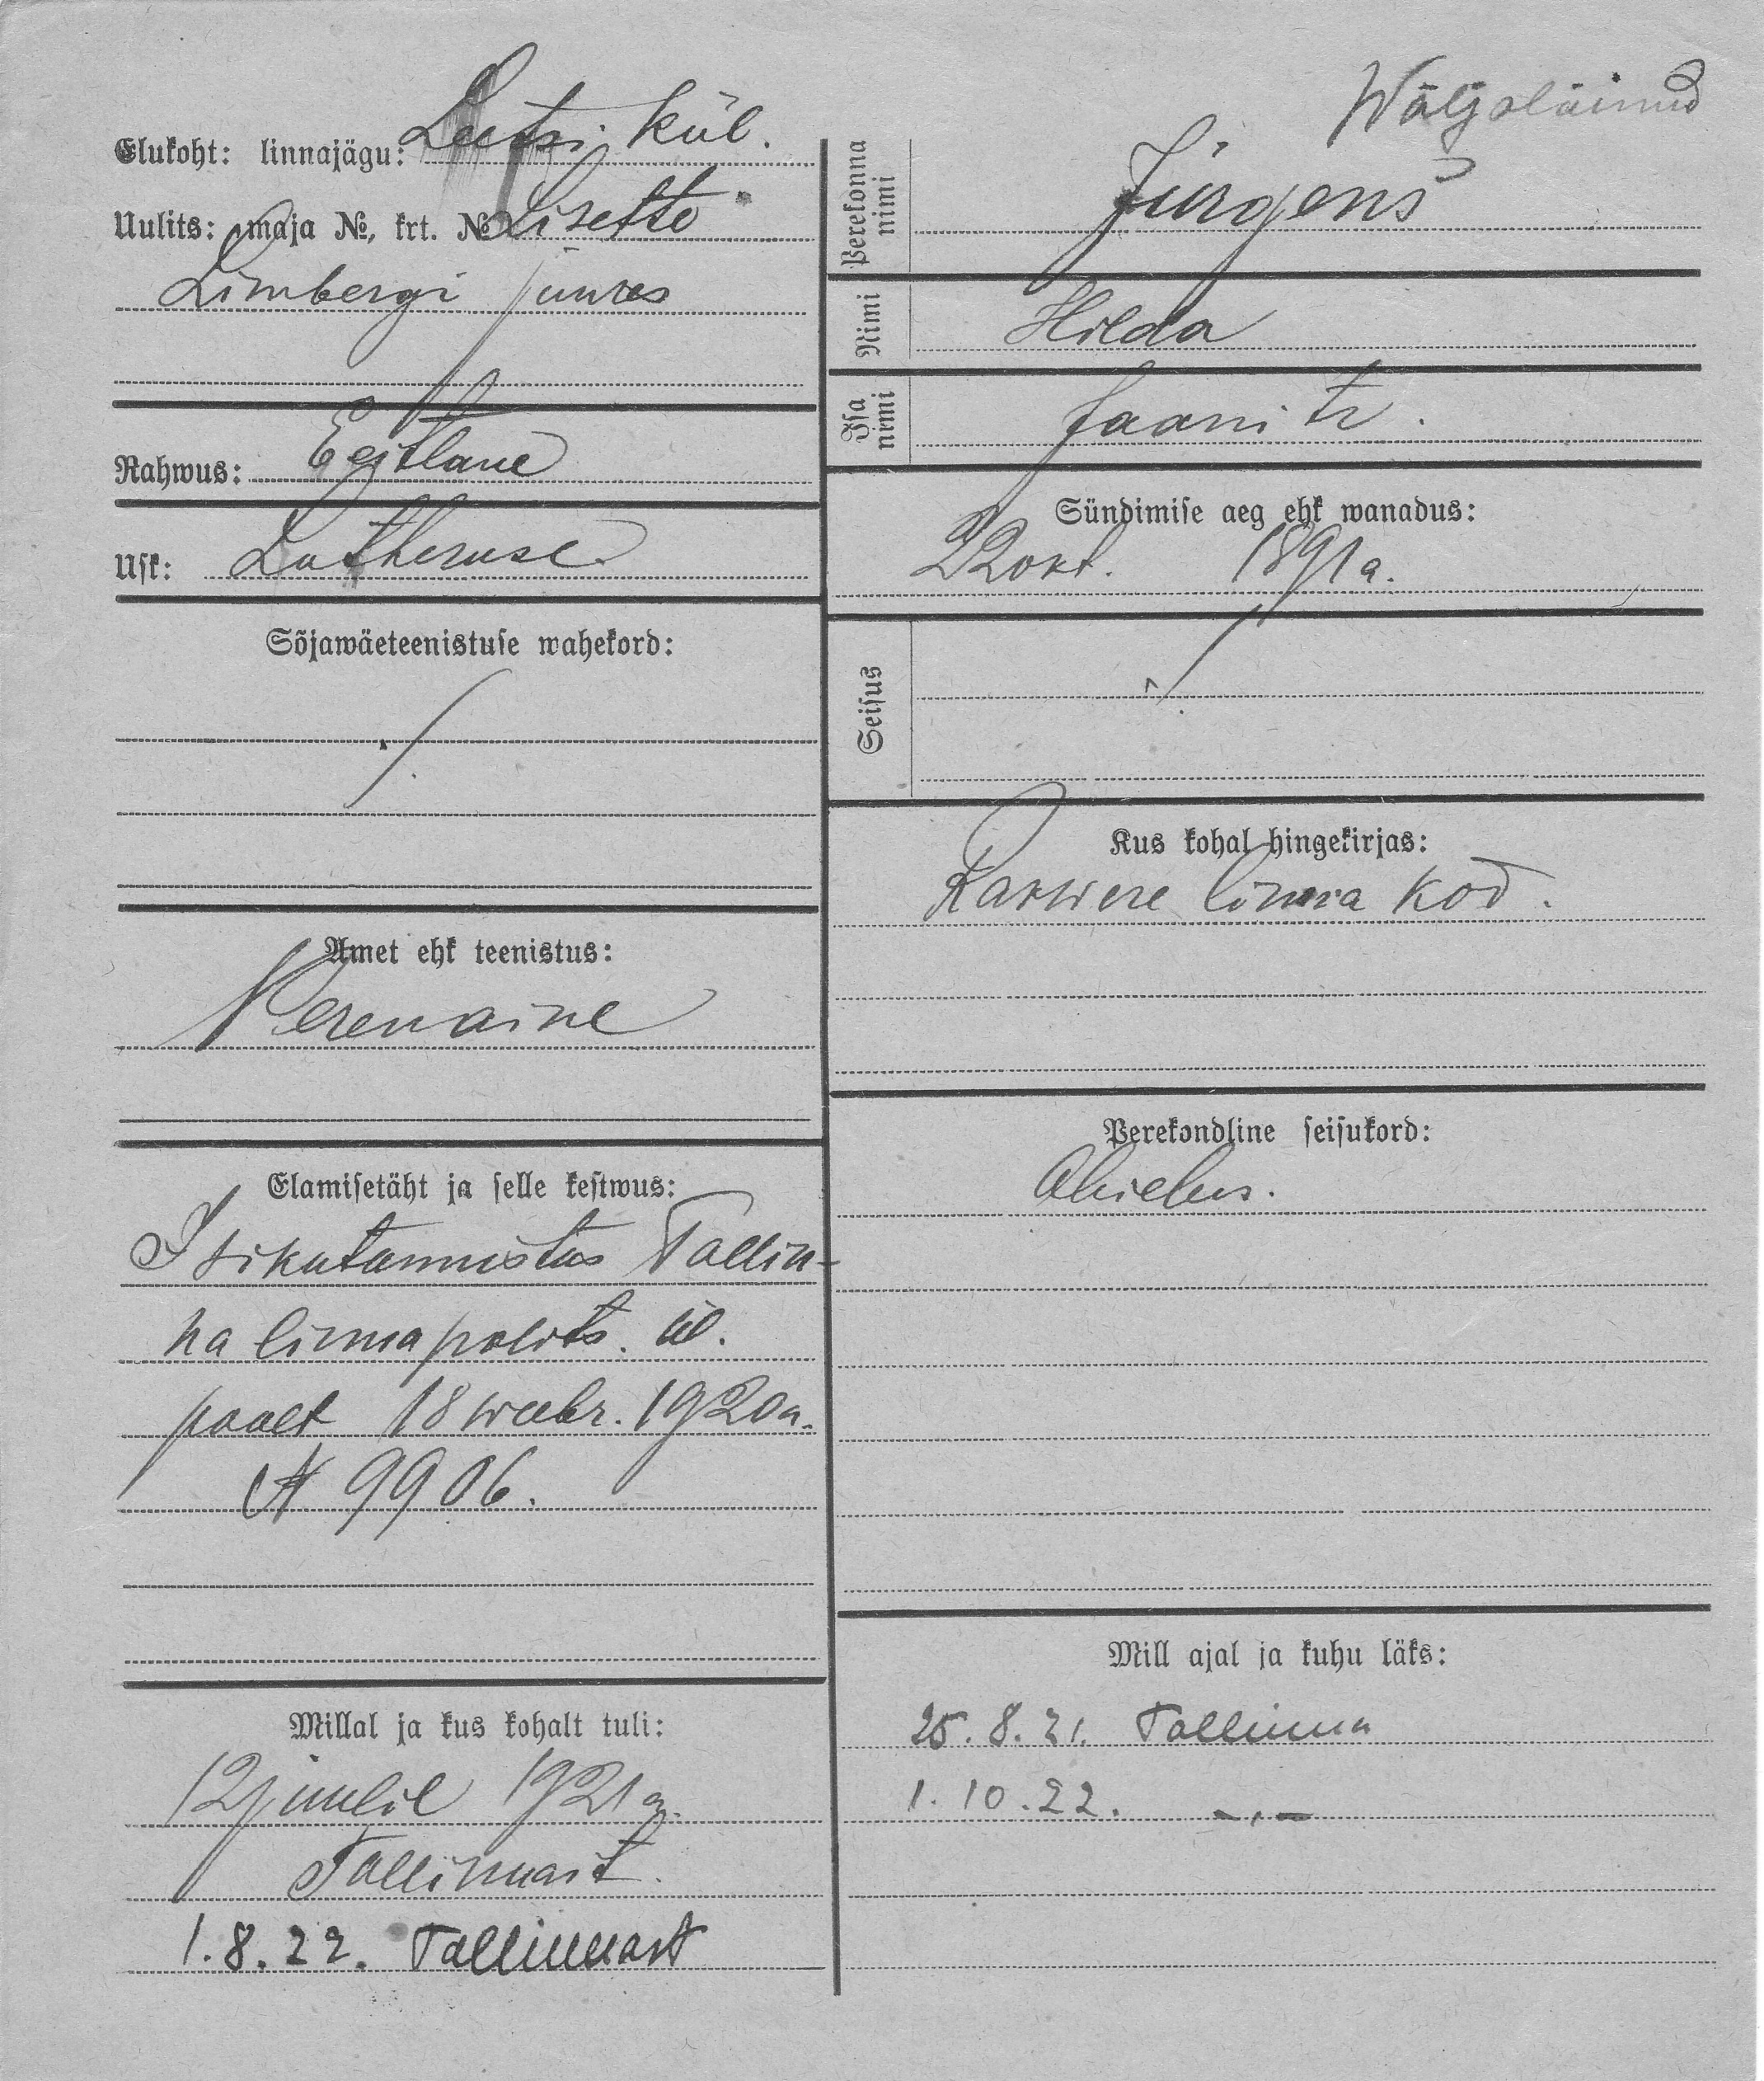 Wäljaläinud
Elukoht: linnajägu: Leetsi kül.
Uulits: maja №, krt. № Lisette
Limbergi juures
Rahwus: Eestlane
Usk: Lutheruse
Sõjawäeteenistuse wahekord:
Amet ehk teenistus:
Perenaine
Elamisetäht ja selle kestwus:
Isikutunnistus Tallin-
na linna polits. ül.
poolt 18 weebr. 1920 a.
№ 9906.
Millal ja kus kohalt tuli:
12 juulil 1921 a.
Tallinnast.
1.8.22. Tallinnast
Perekonna nimi
Jürgens
Nimi
Hilda
Isa nimi
Jaani tr.
Sündimise aeg ehk wanadus:
22 okt. 1891 a.
Seisus
Kus kohal hingekirjas:
Rakwere linna kod.
Perekondline seisukord:
Abielus.
Mill ajal ja kuhu läks:
25.8.21. Tallinna
1.10.22. -„-